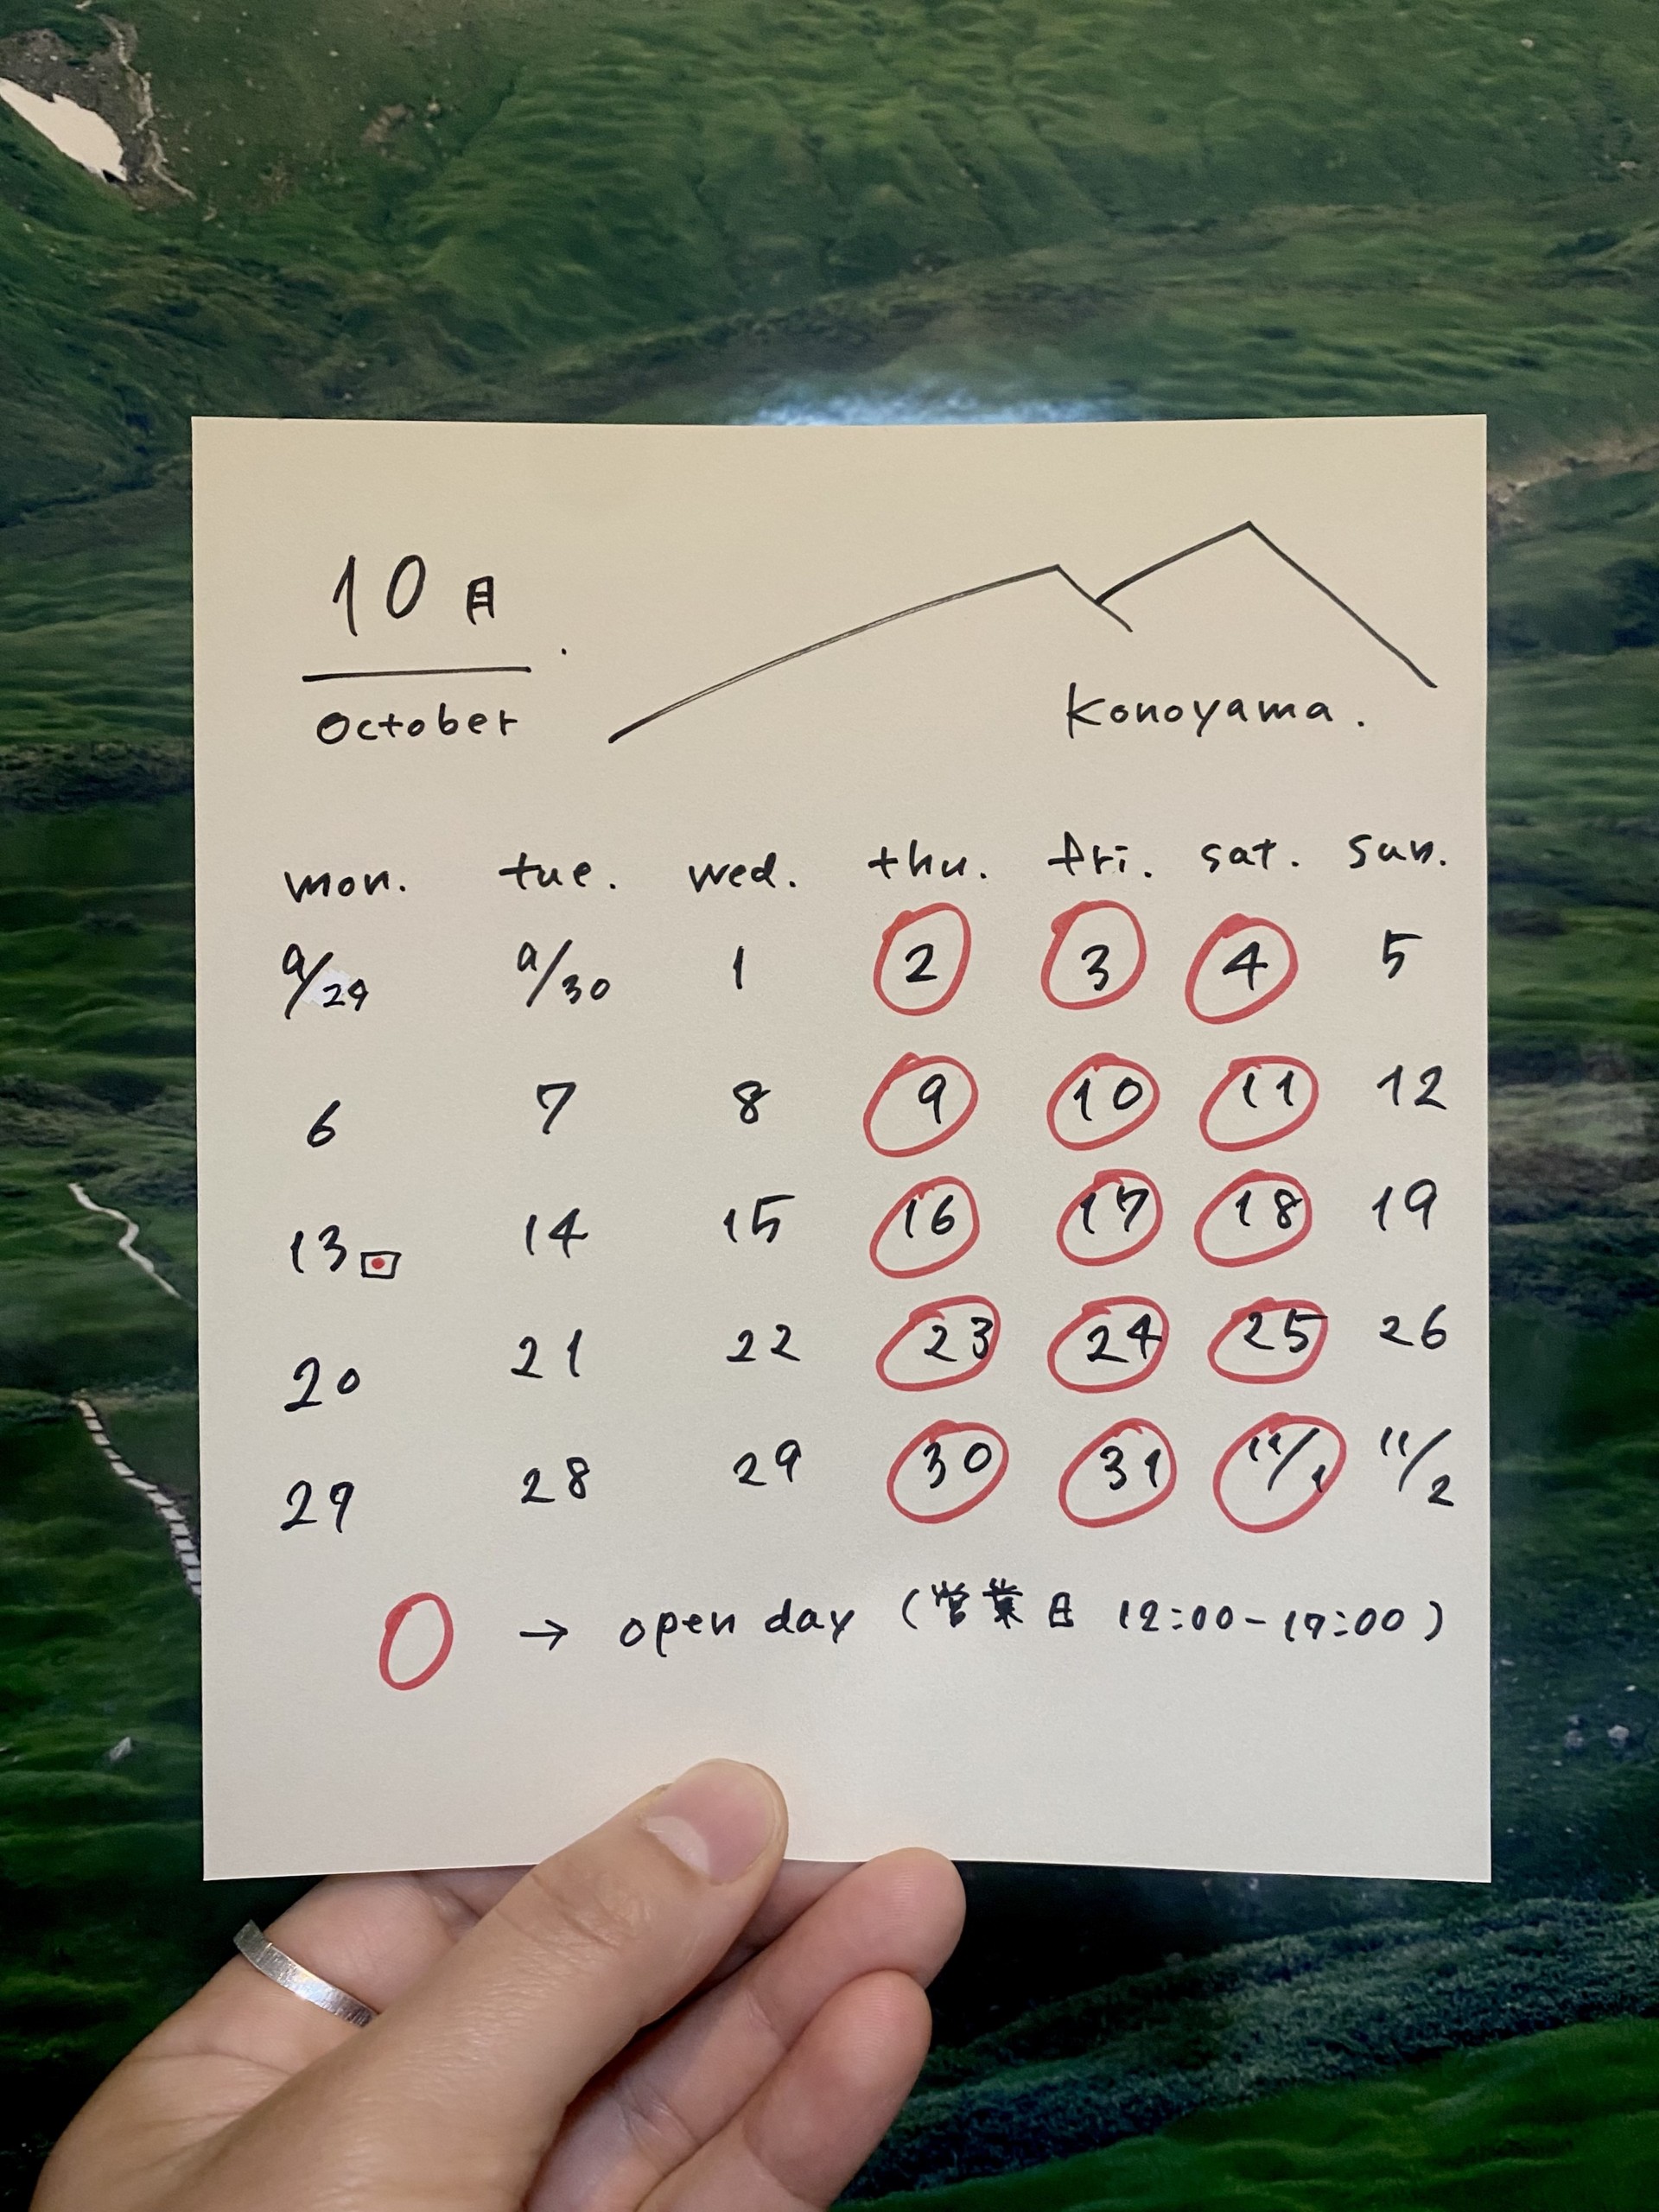 10月.
October
Konoyama.
mon. tue. wed. thu. fri. sat. sun.
9/29 9/30 1 2 3 4 5
6 7 8 9 10 11 12
13 14 15 16 17 18 19
20 21 22 23 24 25 26
29 28 29 30 31 11/1 11/2
→ open day (営業日 12:00-17:00)